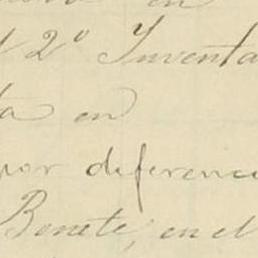 en
2º Inventa
ta en
por diferenc
Benete, en el